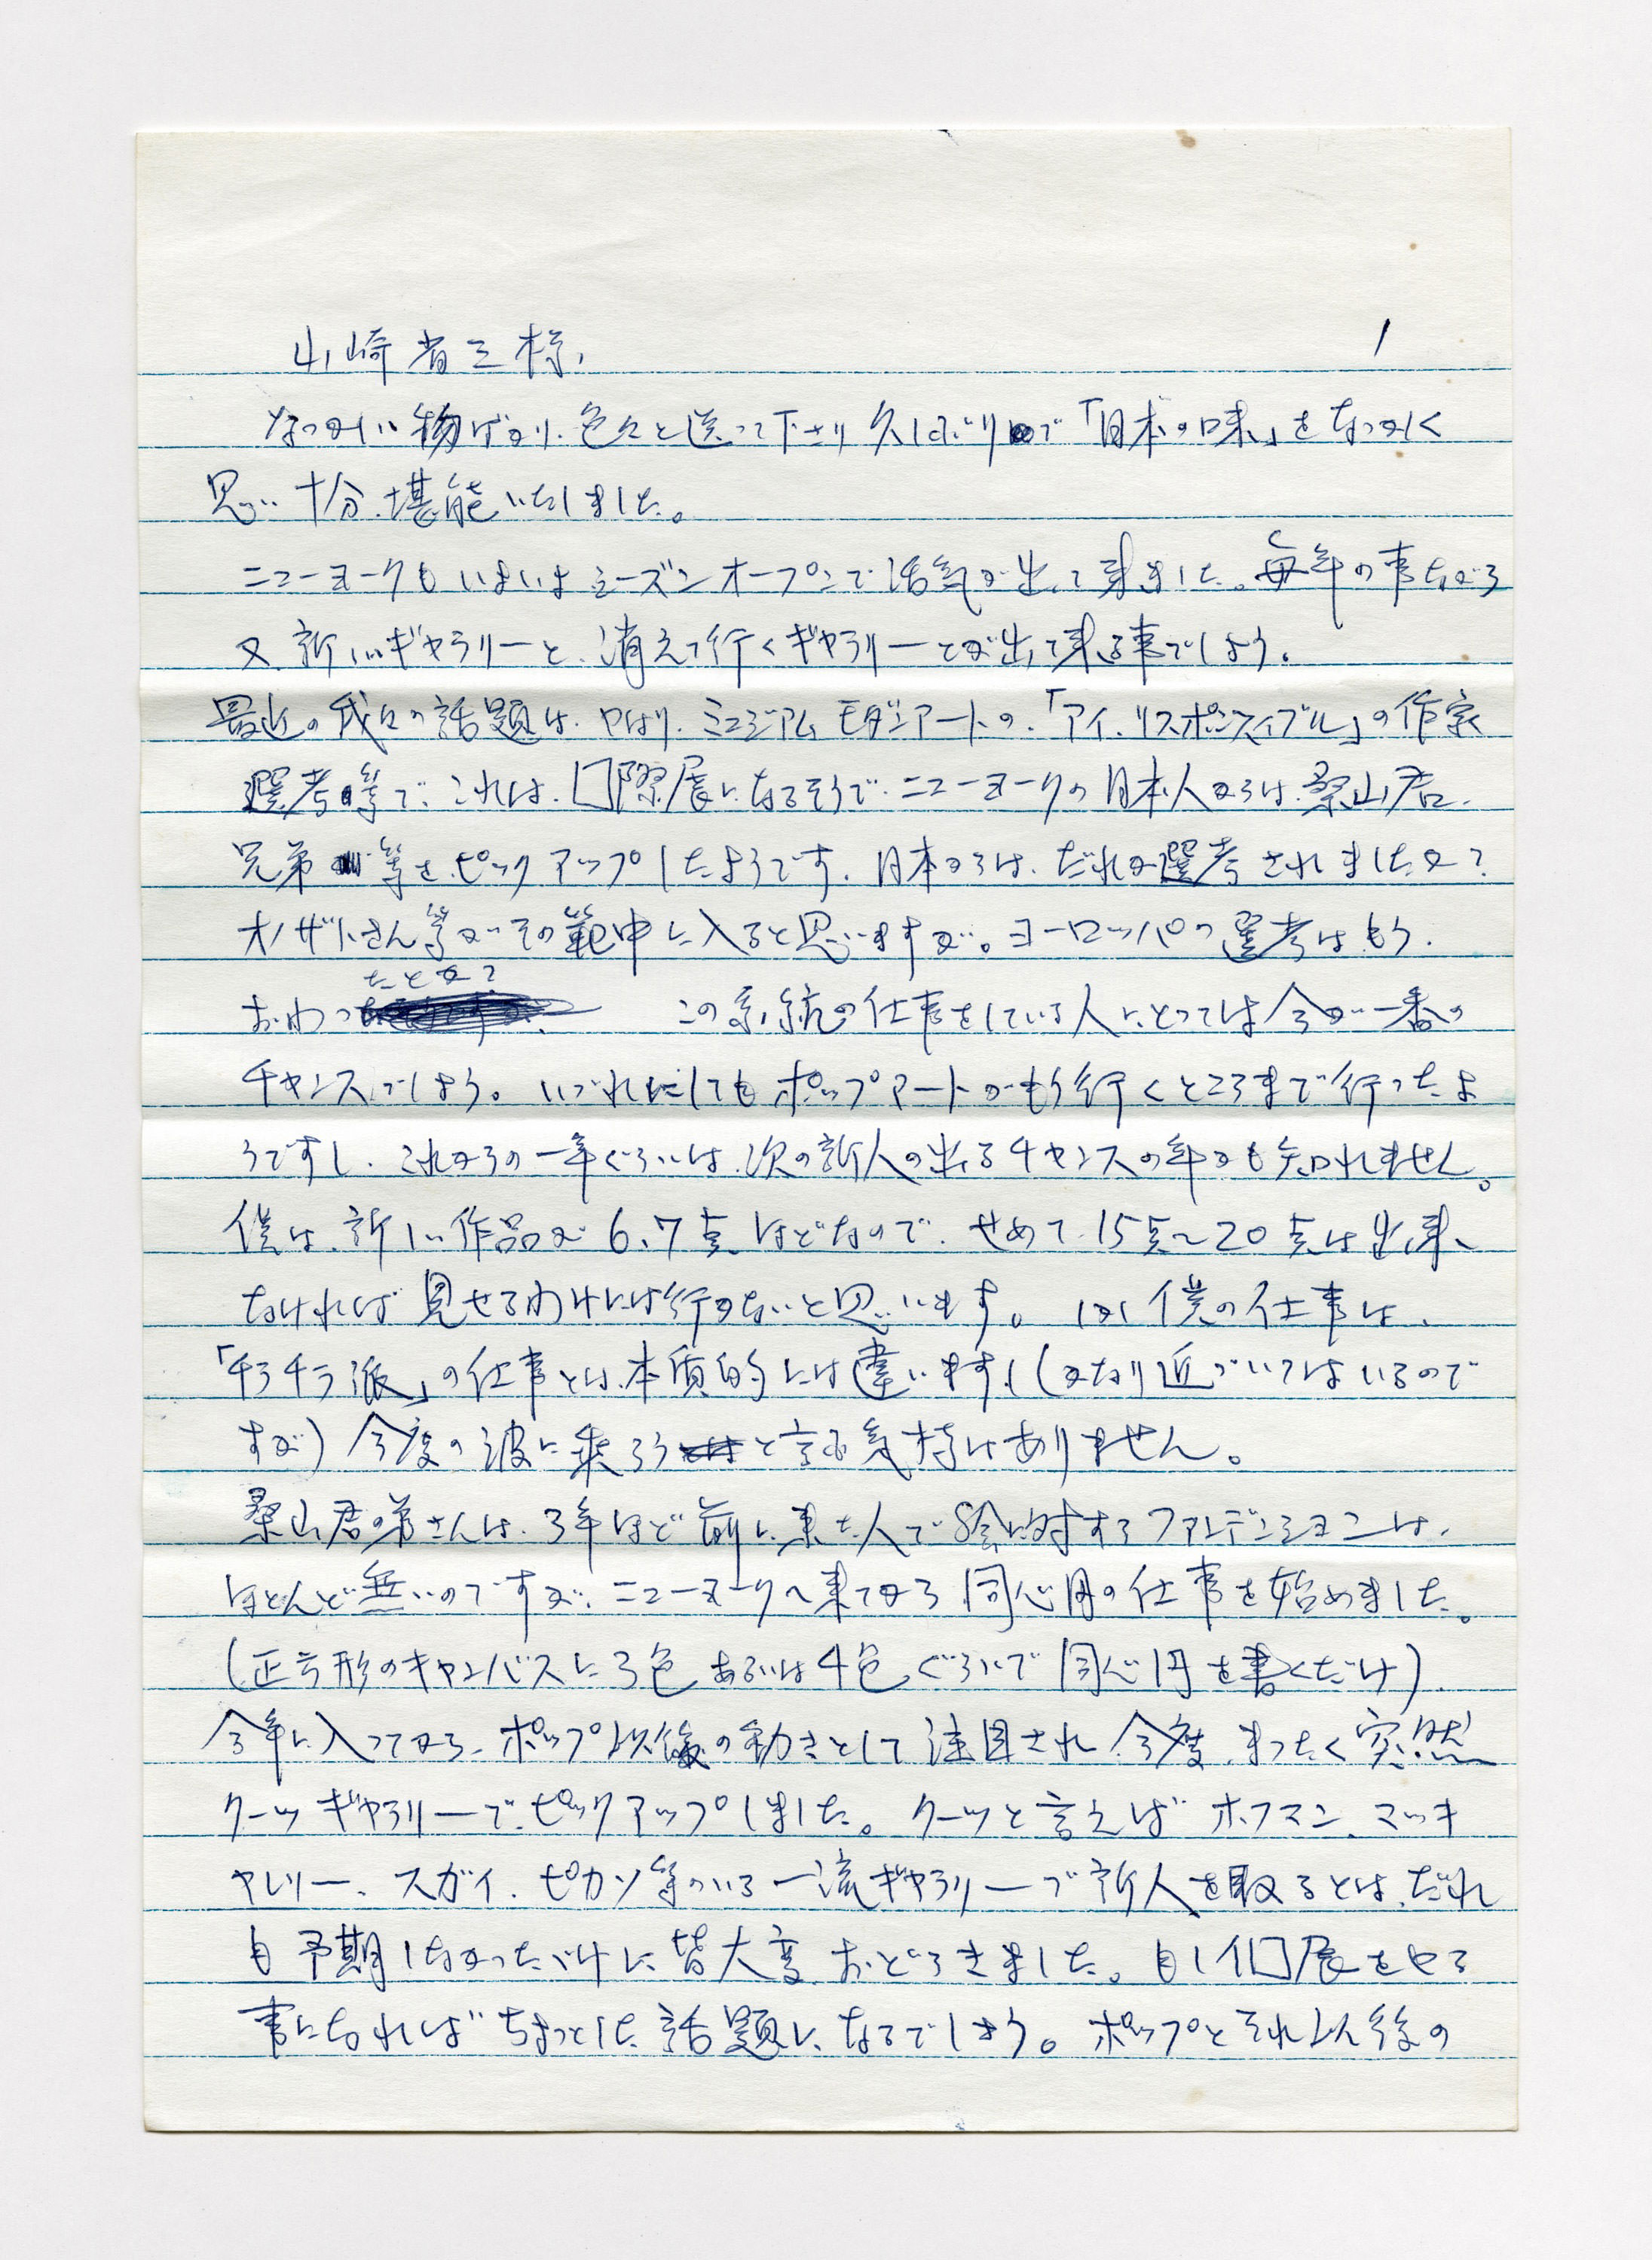 山崎省三様、
1
なつかしい物ばかり、色々と送って下さり久しぶりで「日本の味」をなつかしく
思い十分堪能いたしました。
ニューヨークもいよいよシーズンオープンで活気が出て来ました。毎年の事ながら
又、新しいギャラリーと、消えて行くギャラリーとが出て来る事でしょう。
最近の我々の話題は、やはり、ミュジアムモダンアートの、「アイ、リスポンスィブル」の作家
選考等で、これは、国際展になるそうで、ニューヨークの日本人からは、桑山君、
兄弟等をピックアップしたようです、日本からは、だれが選考されましたか?
オノザトさん等がその範中に入ると思いますが。ヨーロッパの選考はもう、
おわったとか?この系統の仕事をしている人にとっては今が一番の
チャンスでしょう。いづれにしてもポップアートがもう行くところまで行ったよ
うですし、これからの一年ぐらいは、次の新人の出るチャンスの年かも知れません。
僕は、新しい作品が6、7点ほどなので、せめて、15点〜20点は出来、
なければ見せるわけには行かないと思います。しかし僕の仕事は、
「チラチラ派」の仕事とは、本質的には違いますし(かなり近づいてはいるので
すが)今度の波に乗ろうと言う気持はありません。
桑山君の弟さんは、3年ほど前に来た人で絵に対するファンデンションは、
ほとんど無いのですが、ニューヨークへ来てから同心円の仕事を始めました。
(正方形のキャンバスに3色あるいは4色ぐらいで同心円を書くだけ)
今年に入ってから、ポップ以後の動きとして注目され今度、まったく突然
クーツギャラリーでピックアップしました。クーツと言えばホフマン、マッキ
ャレリー、スガイ、ピカソ等のいる一流ギャラリーで新人を取るとは、だれ
も予期しなかっただけに皆大変おどろきました。もし個展をやる
事になればちょっとした話題になるでしょう。ポップとそれ以後の